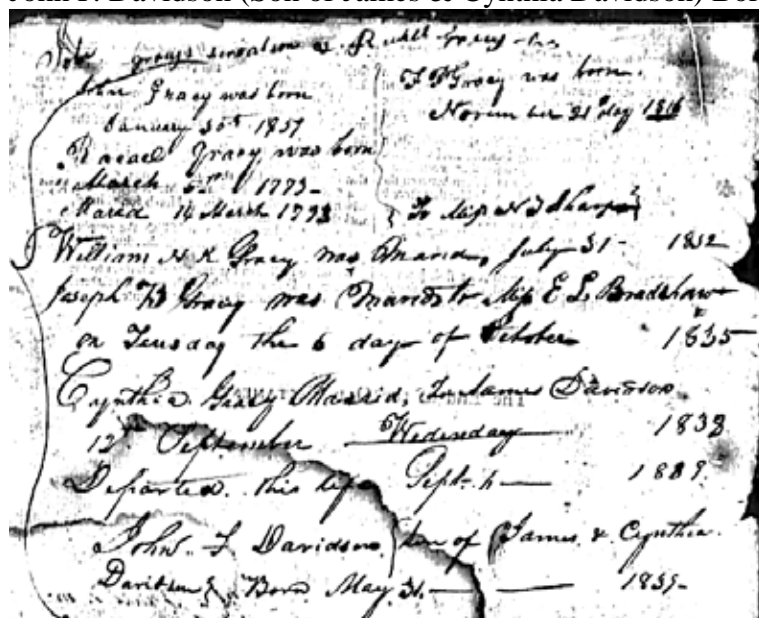 John F. Davidson (Son of James & Cynthia Davidson) Bor
John Gracy was born
January 30th 1857
Racael Gracy was born
March 1773-
Maried 14 March 1793
J F Gracy was born.
November 21 day 1816
To Miss N I Sharpe
William H K Gracy was Maried, July 31- 1832
Joseph F Gracy was Maried to Miss E L Bradshaw
on Teusday the 6 day of October 1835
Cynthia Gracy Maarid, James Davidson
12 September Wedensday 1838
Departed this life Sept. 1889.
John. F Davidson, Son of James & Cynthia
Davidson Born May 31. 1839-